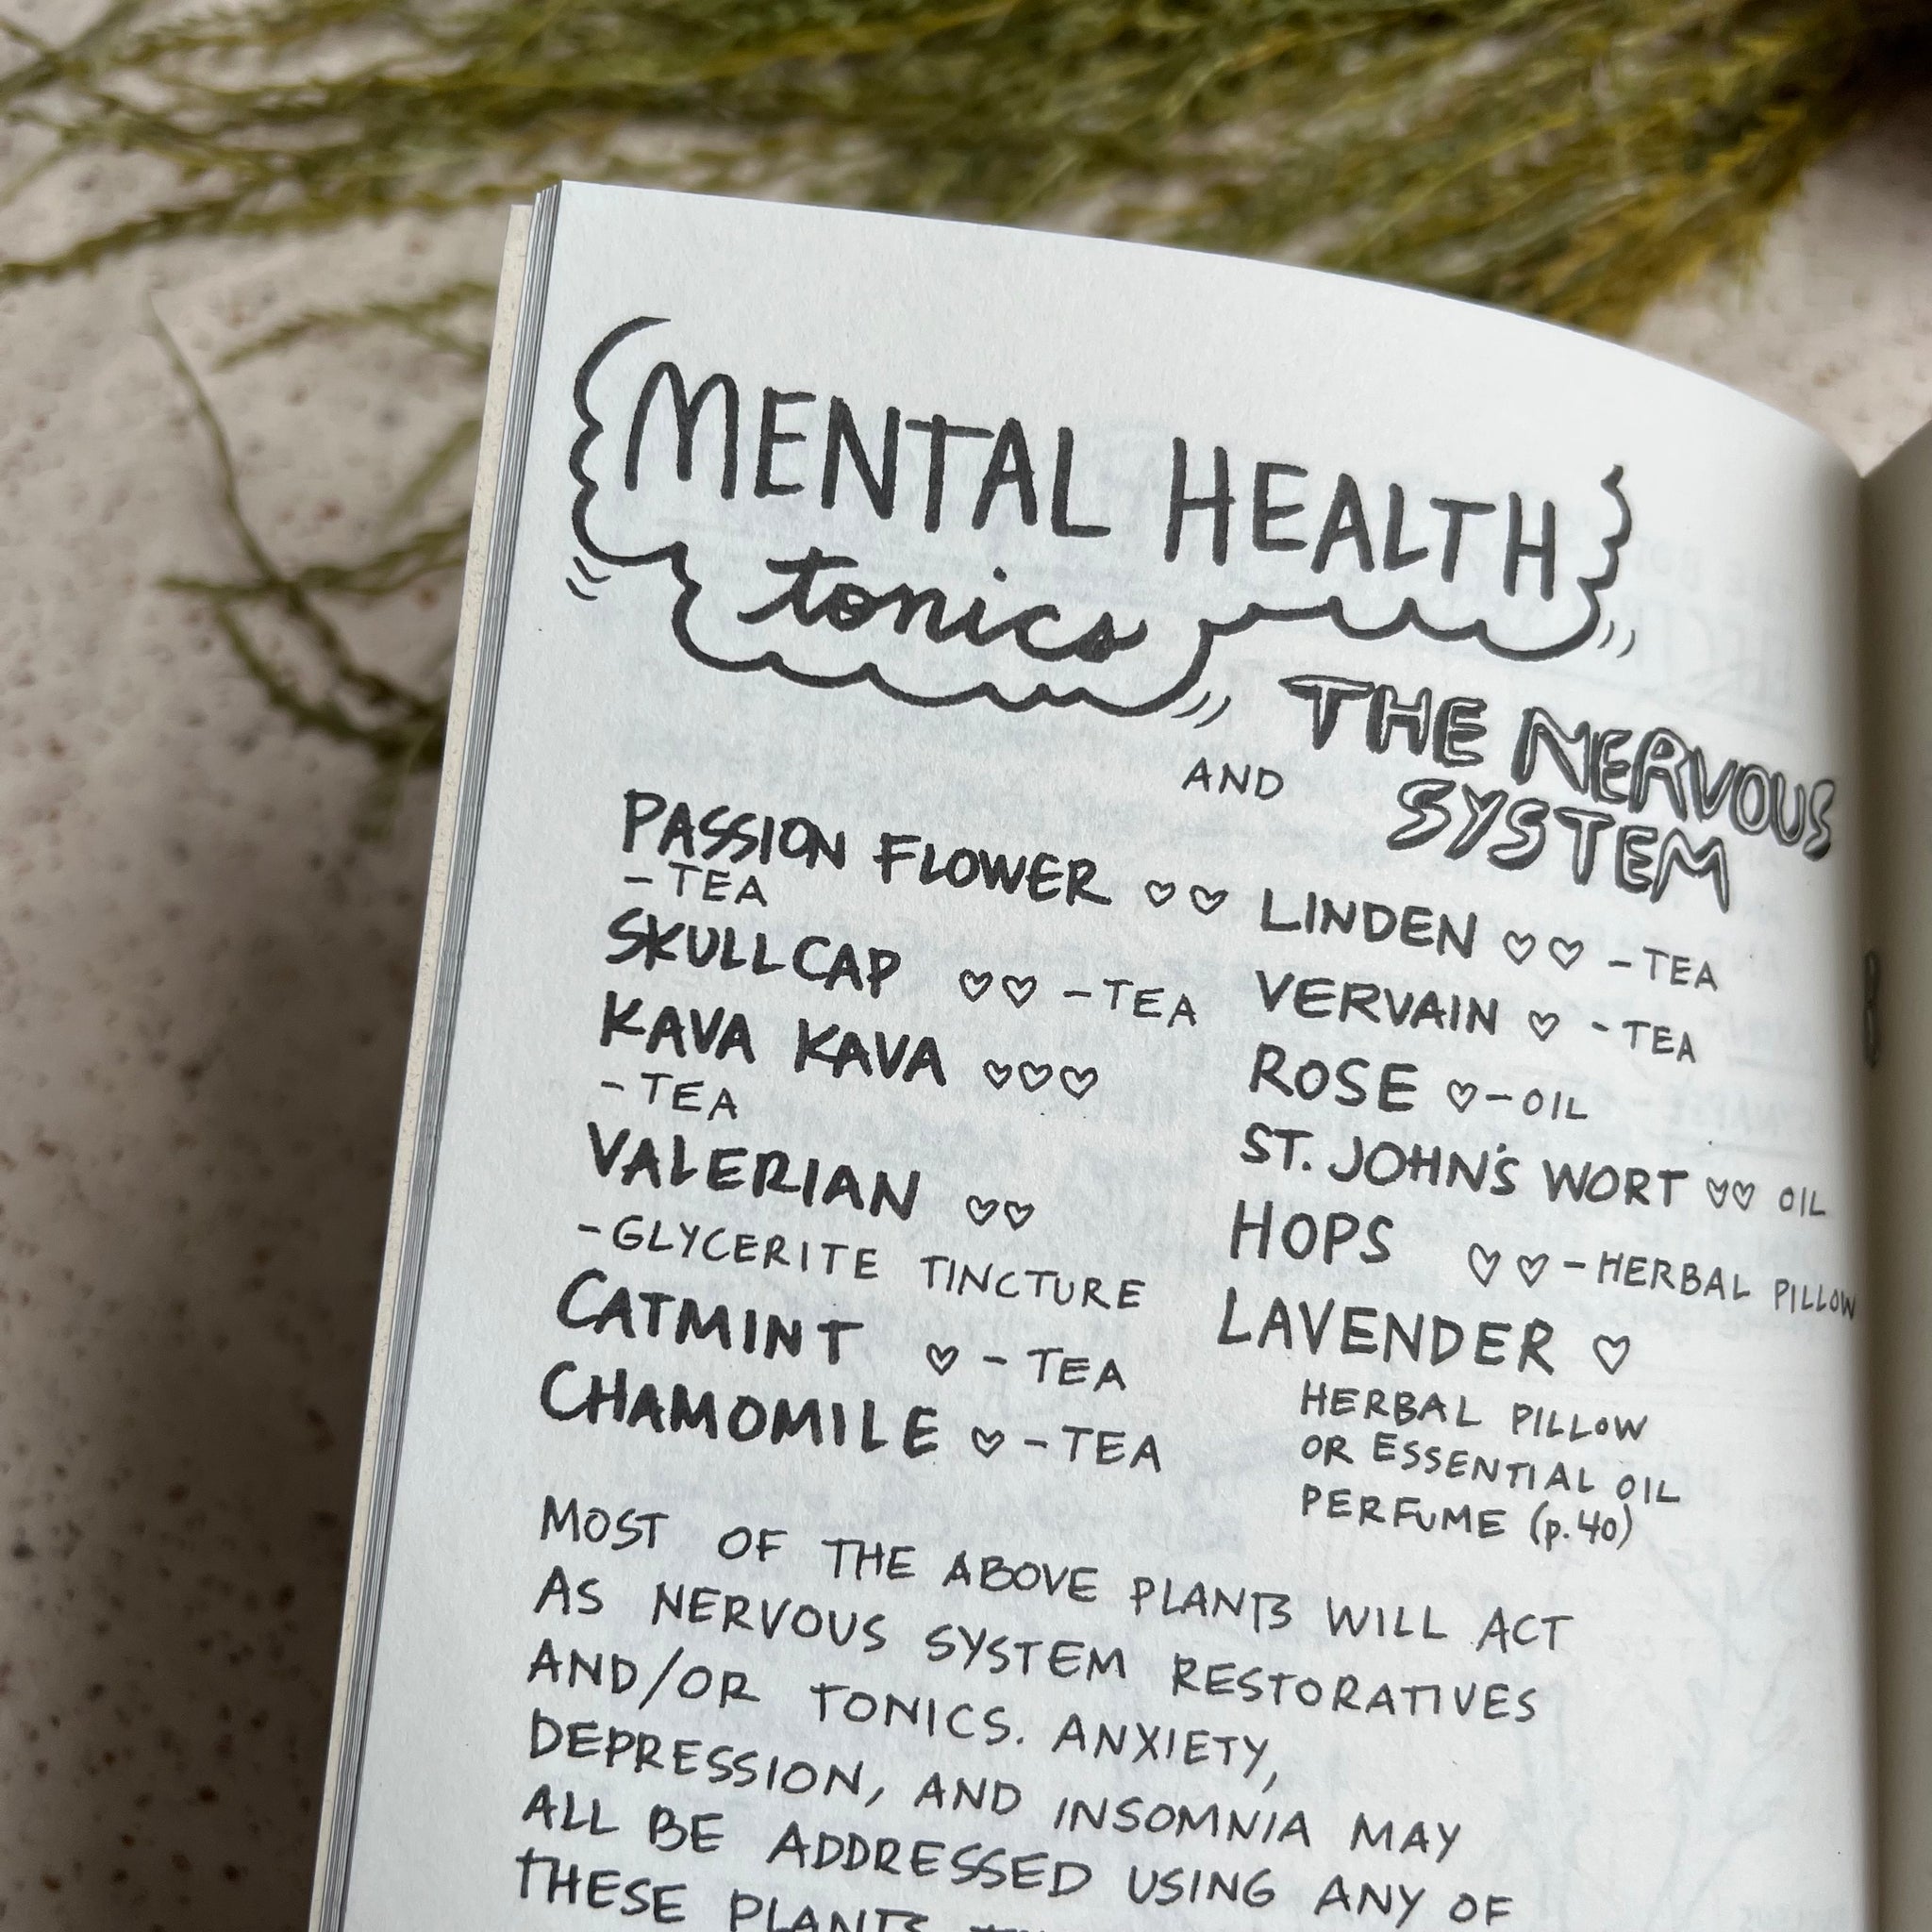 MENTAL HEALTH
tonics
AND THE NERVOUS
SYSTEM
PASSION FLOWER ♡♡
- TEA
SKULLCAP ♡♡ - TEA
KAVA KAVA ♡♡♡
- TEA
VALERIAN ♡♡
- GLYCERITE TINCTURE
CATMINT ♡ - TEA
CHAMOMILE ♡ - TEA
LINDEN ♡♡ - TEA
VERVAIN ♡ - TEA
ROSE ♡ - OIL
ST. JOHN'S WORT ♡♡ OIL
HOPS ♡♡ - HERBAL PILLOW
LAVENDER ♡
HERBAL PILLOW
OR ESSENTIAL OIL
PERFUME (p.40)
MOST OF THE ABOVE PLANTS WILL ACT
AS NERVOUS SYSTEM RESTORATIVES
AND/OR TONICS. ANXIETY,
DEPRESSION, AND INSOMNIA MAY
ALL BE ADDRESSED USING ANY OF
THESE PLANTS